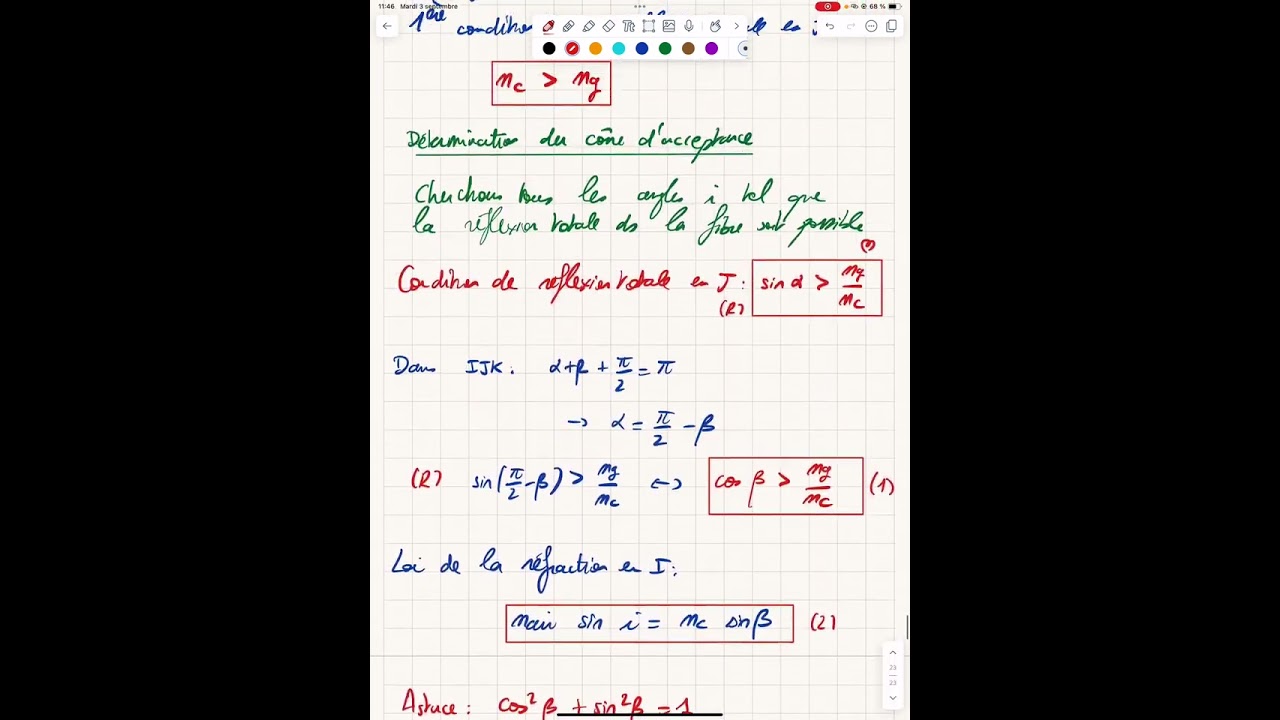 11:46 Mardi 3 septembre 68 %
1ère condition en
nc > ng
Détermination du cône d'acceptance
Cherchons tous les angles i tel que
la réflexion totale ds la fibre soit possible
Condition de réflexion totale en J : sin α > ng/nc
(R)
Dans IJK : α + β + π/2 = π
→ α = π/2 - β
(R) sin(π/2 - β) > ng/nc ↔ cos β > ng/nc (1)
Loi de la réfraction en I :
nair sin i = nc sin β (2)
23
23
Astuce : cos² β + sin² β = 1